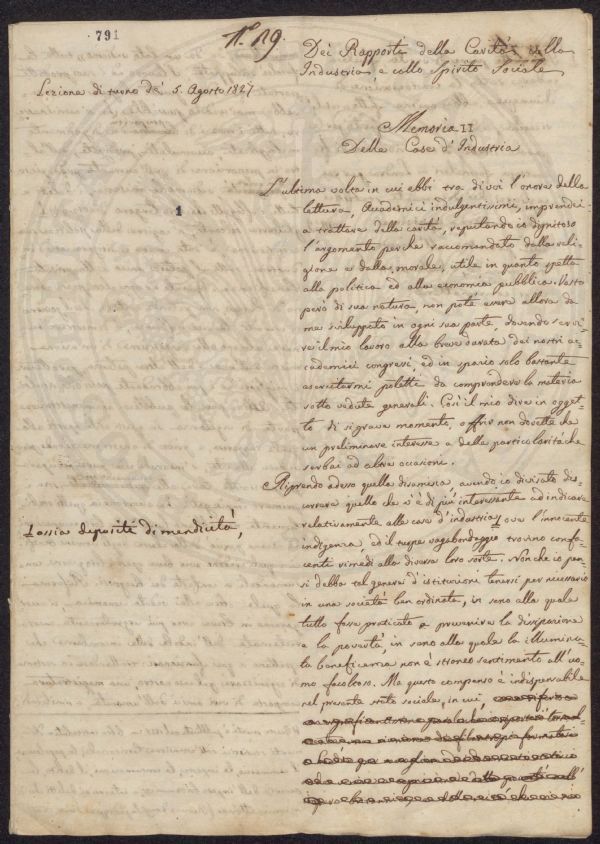 791
N.º 19.
Dei Rapporti della Carità colla
Industria, e collo Spirito Sociale
Lezione di turno de' 5. Agosto 1827
Memoria II
Delle Case d'Industria
1
L'ultima volta in cui ebbi tra di voi l'onore della
lettura, Accademici indulgentissimi, impresi
a trattare della carità, reputando io dignitoso
l'argomento perchè raccomandato dalla reli-
gione e dalla morale, utile in quanto spetta
alla politica ed alla economia pubblica. Vasto
però di sua natura, non potè essere allora da
me sviluppato in ogni sua parte, dovendo servi-
re il mio lavoro alla breve durata dei nostri ac-
cademici congressi, ed in spazio solo bastante
esercitarmi potetti da comprendere la materia
sotto vedute generali. Così il mio dire in ogget-
to di sì grave momento, offrir non dovette che
un preliminare interesse e delle particolarità che
serbai ad altra occasione.
Riprendo adesso quella disamina, avendo io divisato dis-
correre quello che vi è di più interessante ad indicare
relativamente alle case d'industria ove l'innocente
indigenza, ed il turpe vagabondaggio trovino confa-
centi rimedi alla diversa loro sorte. Non che io pen-
si debba tal genere d'istituzioni tenersi per necessario
in una società ben ordinata, in seno alla quale
tutto fosse praticato a prevenire la disperazione
e la povertà, in seno alla quale la illumina-
ta beneficenza non è straneo sentimento all'uo-
mo facoltoso. Ma questo compenso è indispensabile
nel presente stato sociale, in cui
ossia depositi di mendicità,